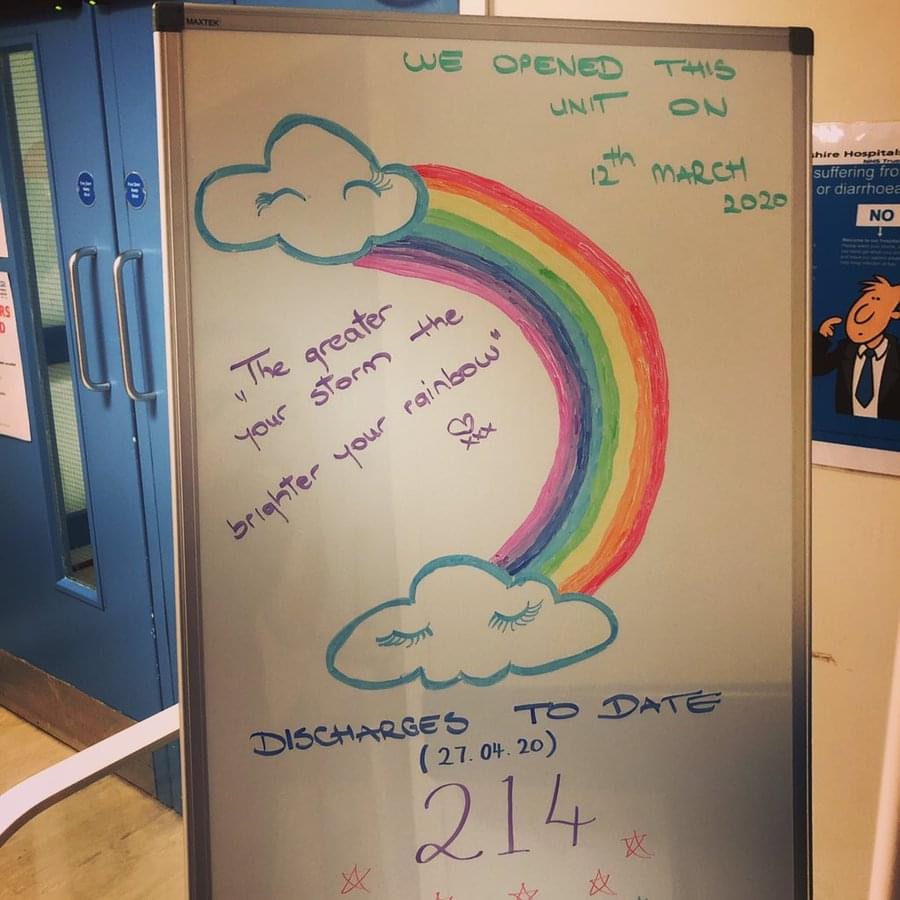 MAXTEK
WE OPENED THIS
UNIT ON
12th MARCH
2020
„The greater
your storm the
brighter your rainbow"
xxx
DISCHARGES TO DATE
(27.04.20)
214
shire Hospitals
NHS Trust
suffering fro
or diarrhoea
NO
RS
D